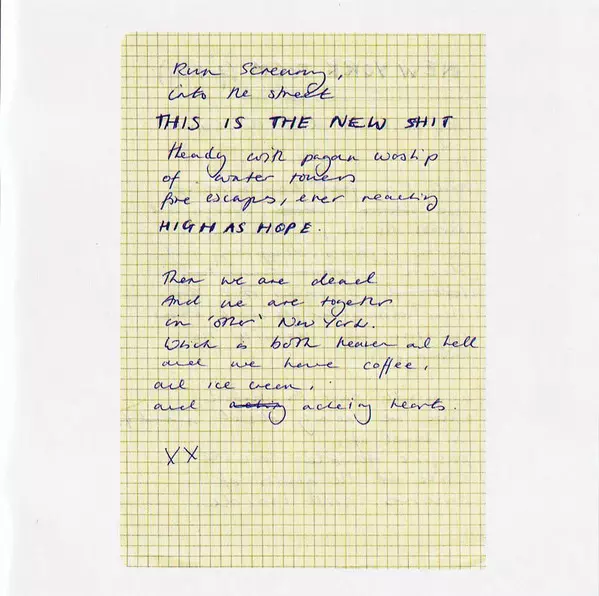 Run Screaming,
into the street
THIS IS THE NEW SHIT
Heady with pagan woship
of water towers
fire escapes, ever reaching
HIGH AS HOPE.
Then we are dead
And we are together
in 'other' New York.
Which is both heaven and hell
and we have coffee,
and ice cream,
and acheing hearts.
XX